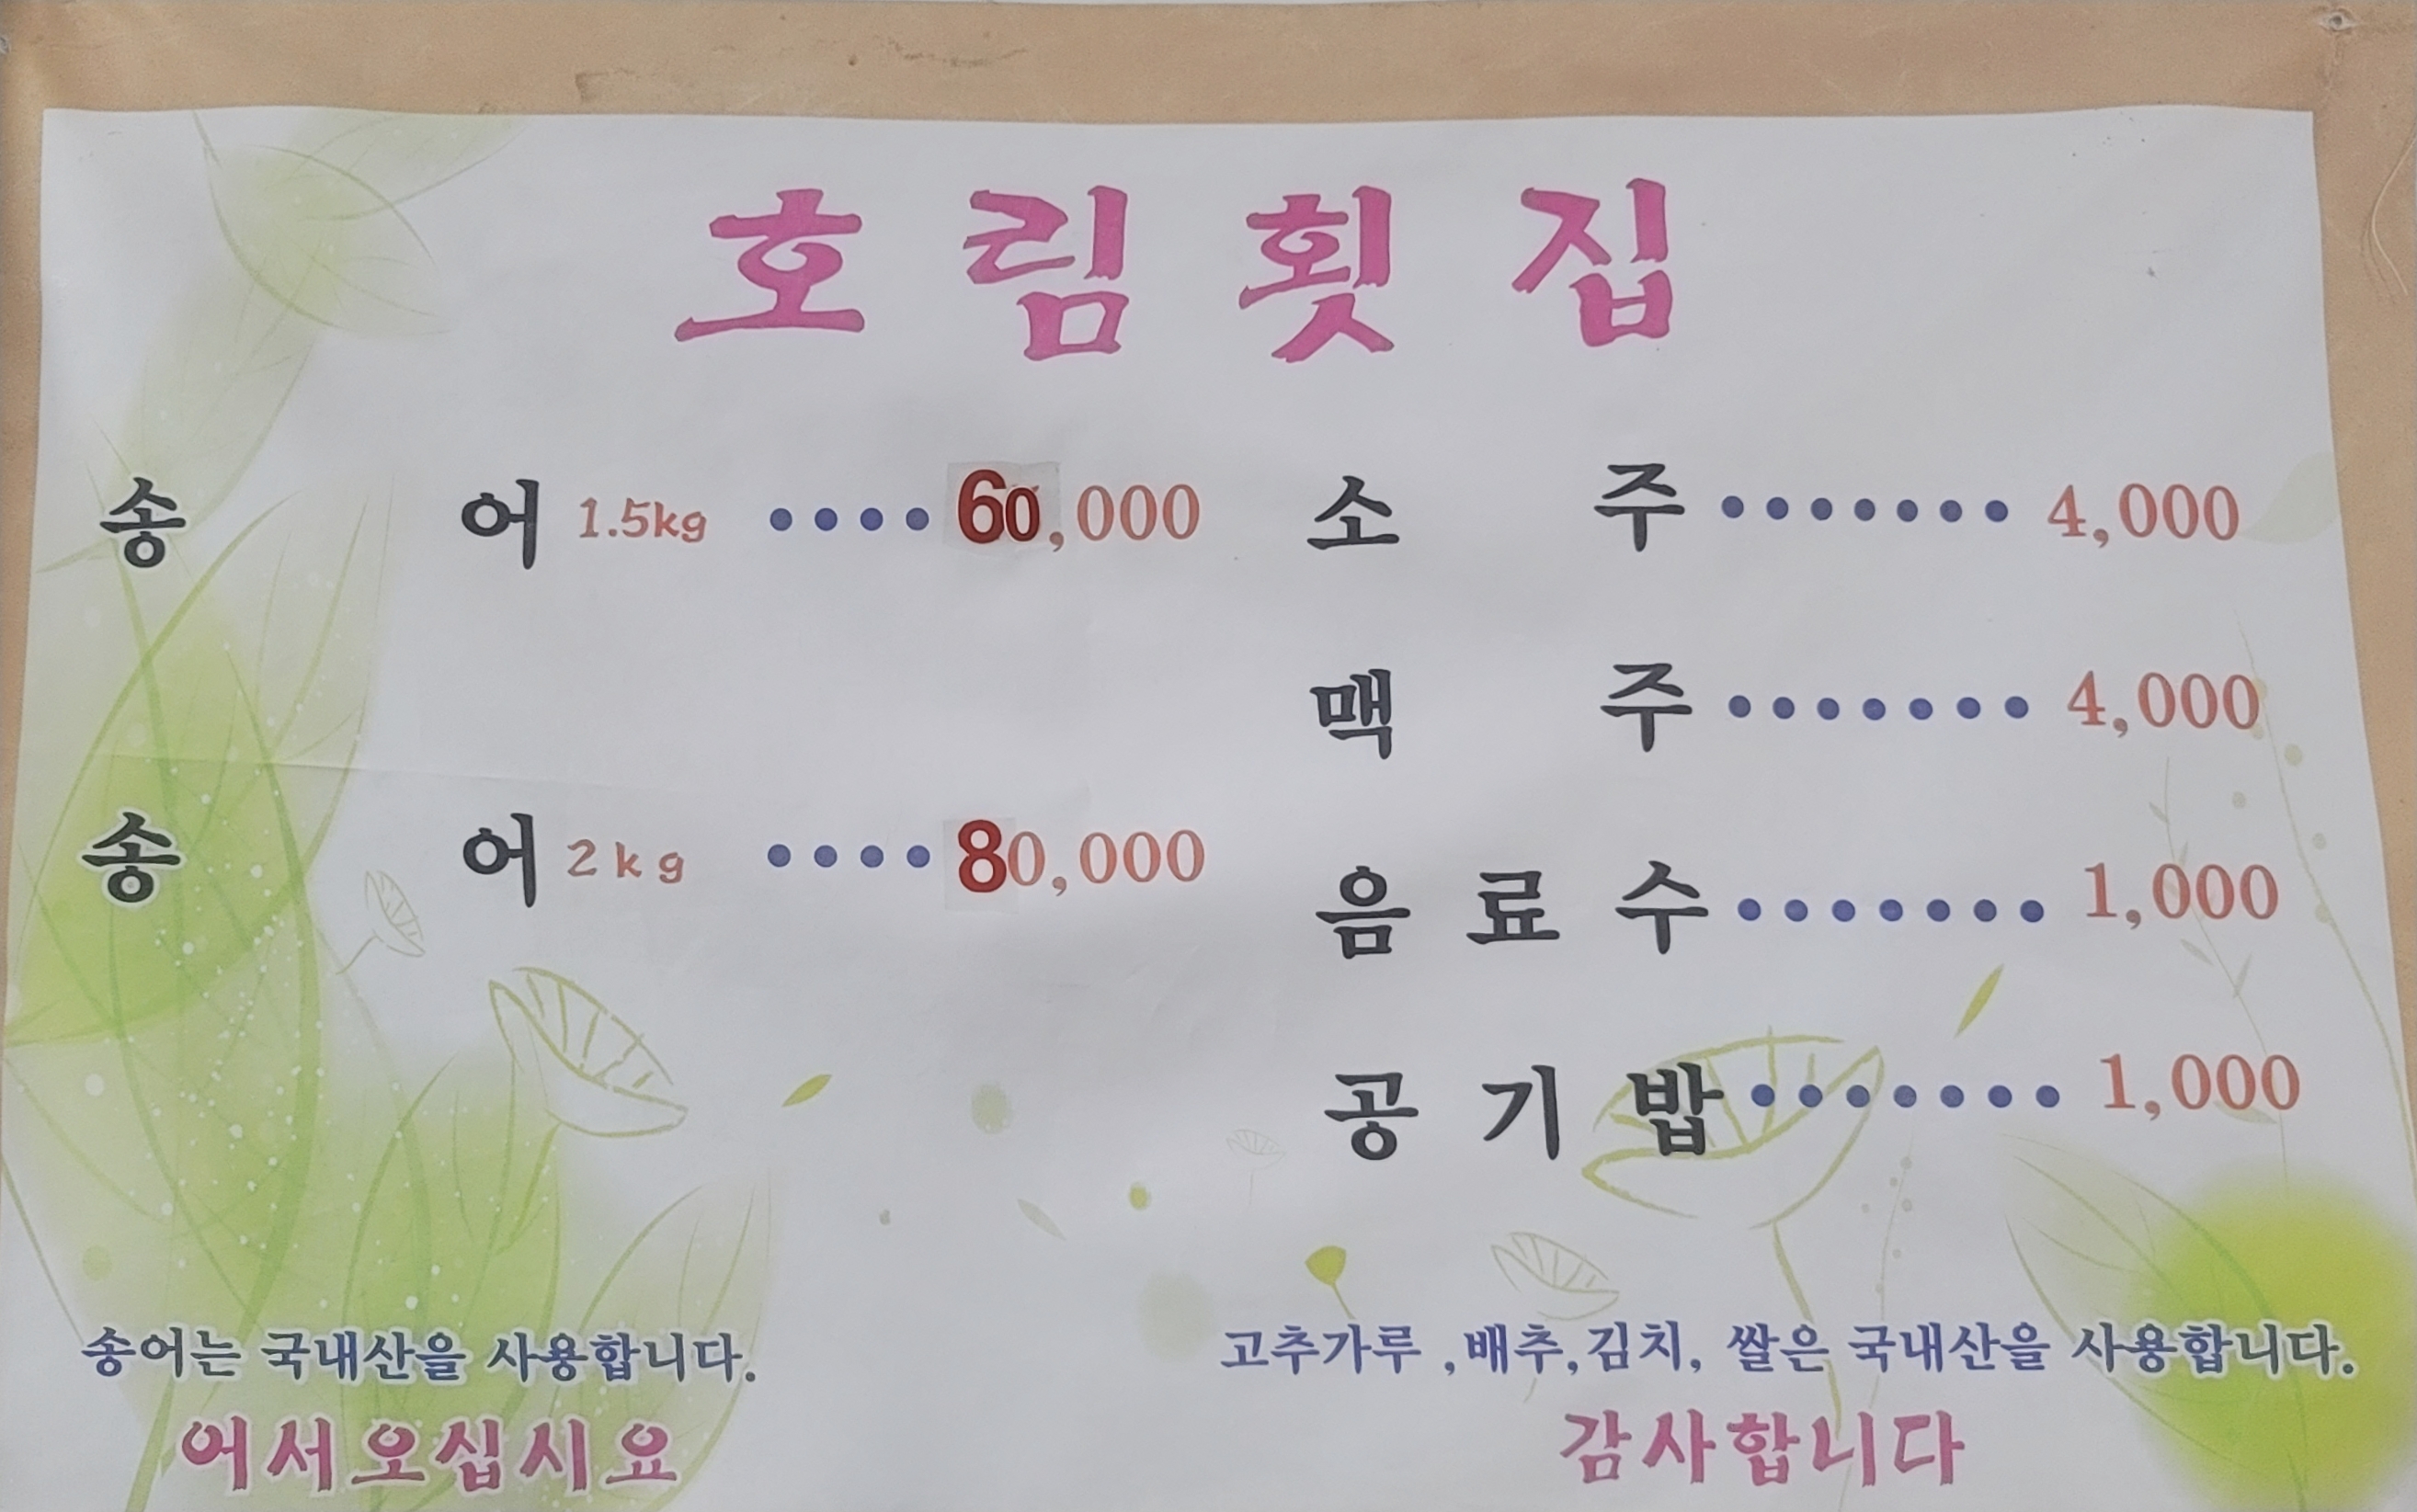 호림횟집
송어 1.5kg ····60,000
소주·······4,000
맥주·······4,000
송어 2kg ····80,000
음료수·······1,000
공기밥·······1,000
송어는 국내산을 사용합니다.
고추가루 ,배추,김치, 쌀은 국내산을 사용합니다.
어서오십시요
감사합니다